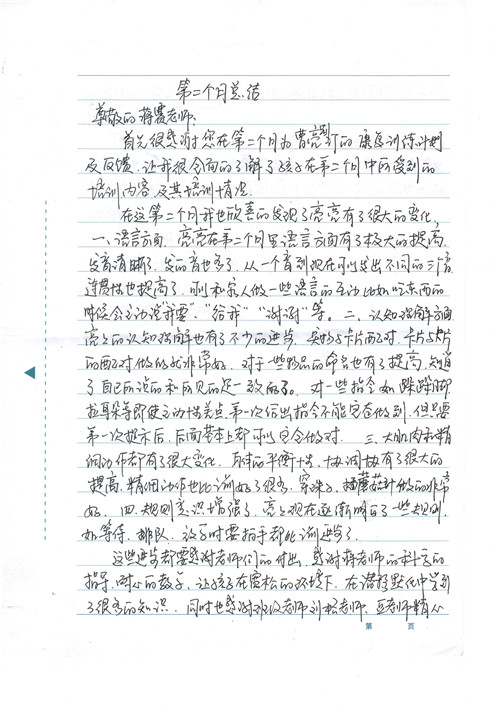 第二个月总结
尊敬的蒋霞老师：
首先很感谢您在第二个月为曹亮制订的康复训练计划
及反馈，让我很全面的了解了孩子在第二个月中所受到的
培训内容及其培训情况。
在这第二个月我也欣喜的发现了亮亮有了很大的变化，
一、语言方面，亮亮在第二个月里语言方面有了极大的提高，
发音清晰了，发的音也多了，从一个音到现在可以发出不同的三个音
连贯性也提高了，可以和家人做一些语言的互动比如吃东西的
时候会主动说"我要"、"给我""谢谢"等。二、认知理解方面
亮亮的认知理解也有了不少的进步，实物与卡片配对，卡片与卡片
的配对做的就非常好，对于一些物品的命名也有了提高，知道
了自己所说的和所见的是一致的了。对一些指令如跺跺脚，
拉耳朵等即使主动性差点，第一次给出指令不能完全做到，但只要
第一次提示后，后面基本上都可以完全做对。三、大肌肉和精
细动作都有了很大变化，身体的平衡，协调有了很大的
提高，精细动作也比训前好了很多，穿珠子，插蘑菇钉做的非常
好。四、规则意识增强了，亮亮现在逐渐明白了一些规则，
如等待、排队，这时需要拍手都比训前进步了。
这些进步都要感谢老师们的付出，感谢蒋老师的科学的
指导，耐心的教学，让孩子在宽松的环境下，在潜移默化中学到
了很多的知识，同时也感谢班级老师刘老师、王老师精心
第 页